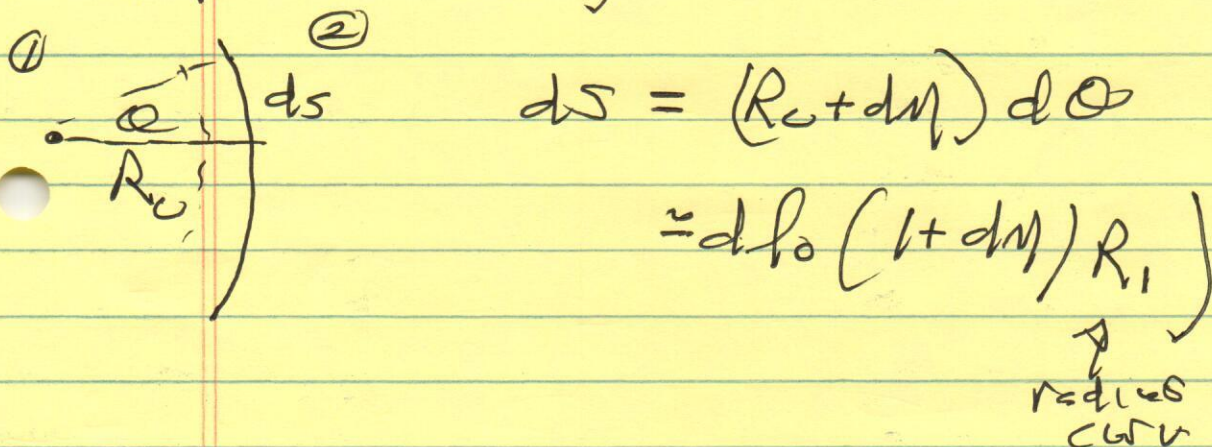 ① ②
θ ds dS = (Rc + dη) dθ
Rc
= dl₀ (1 + dη / R₁)
↑
radius
curv